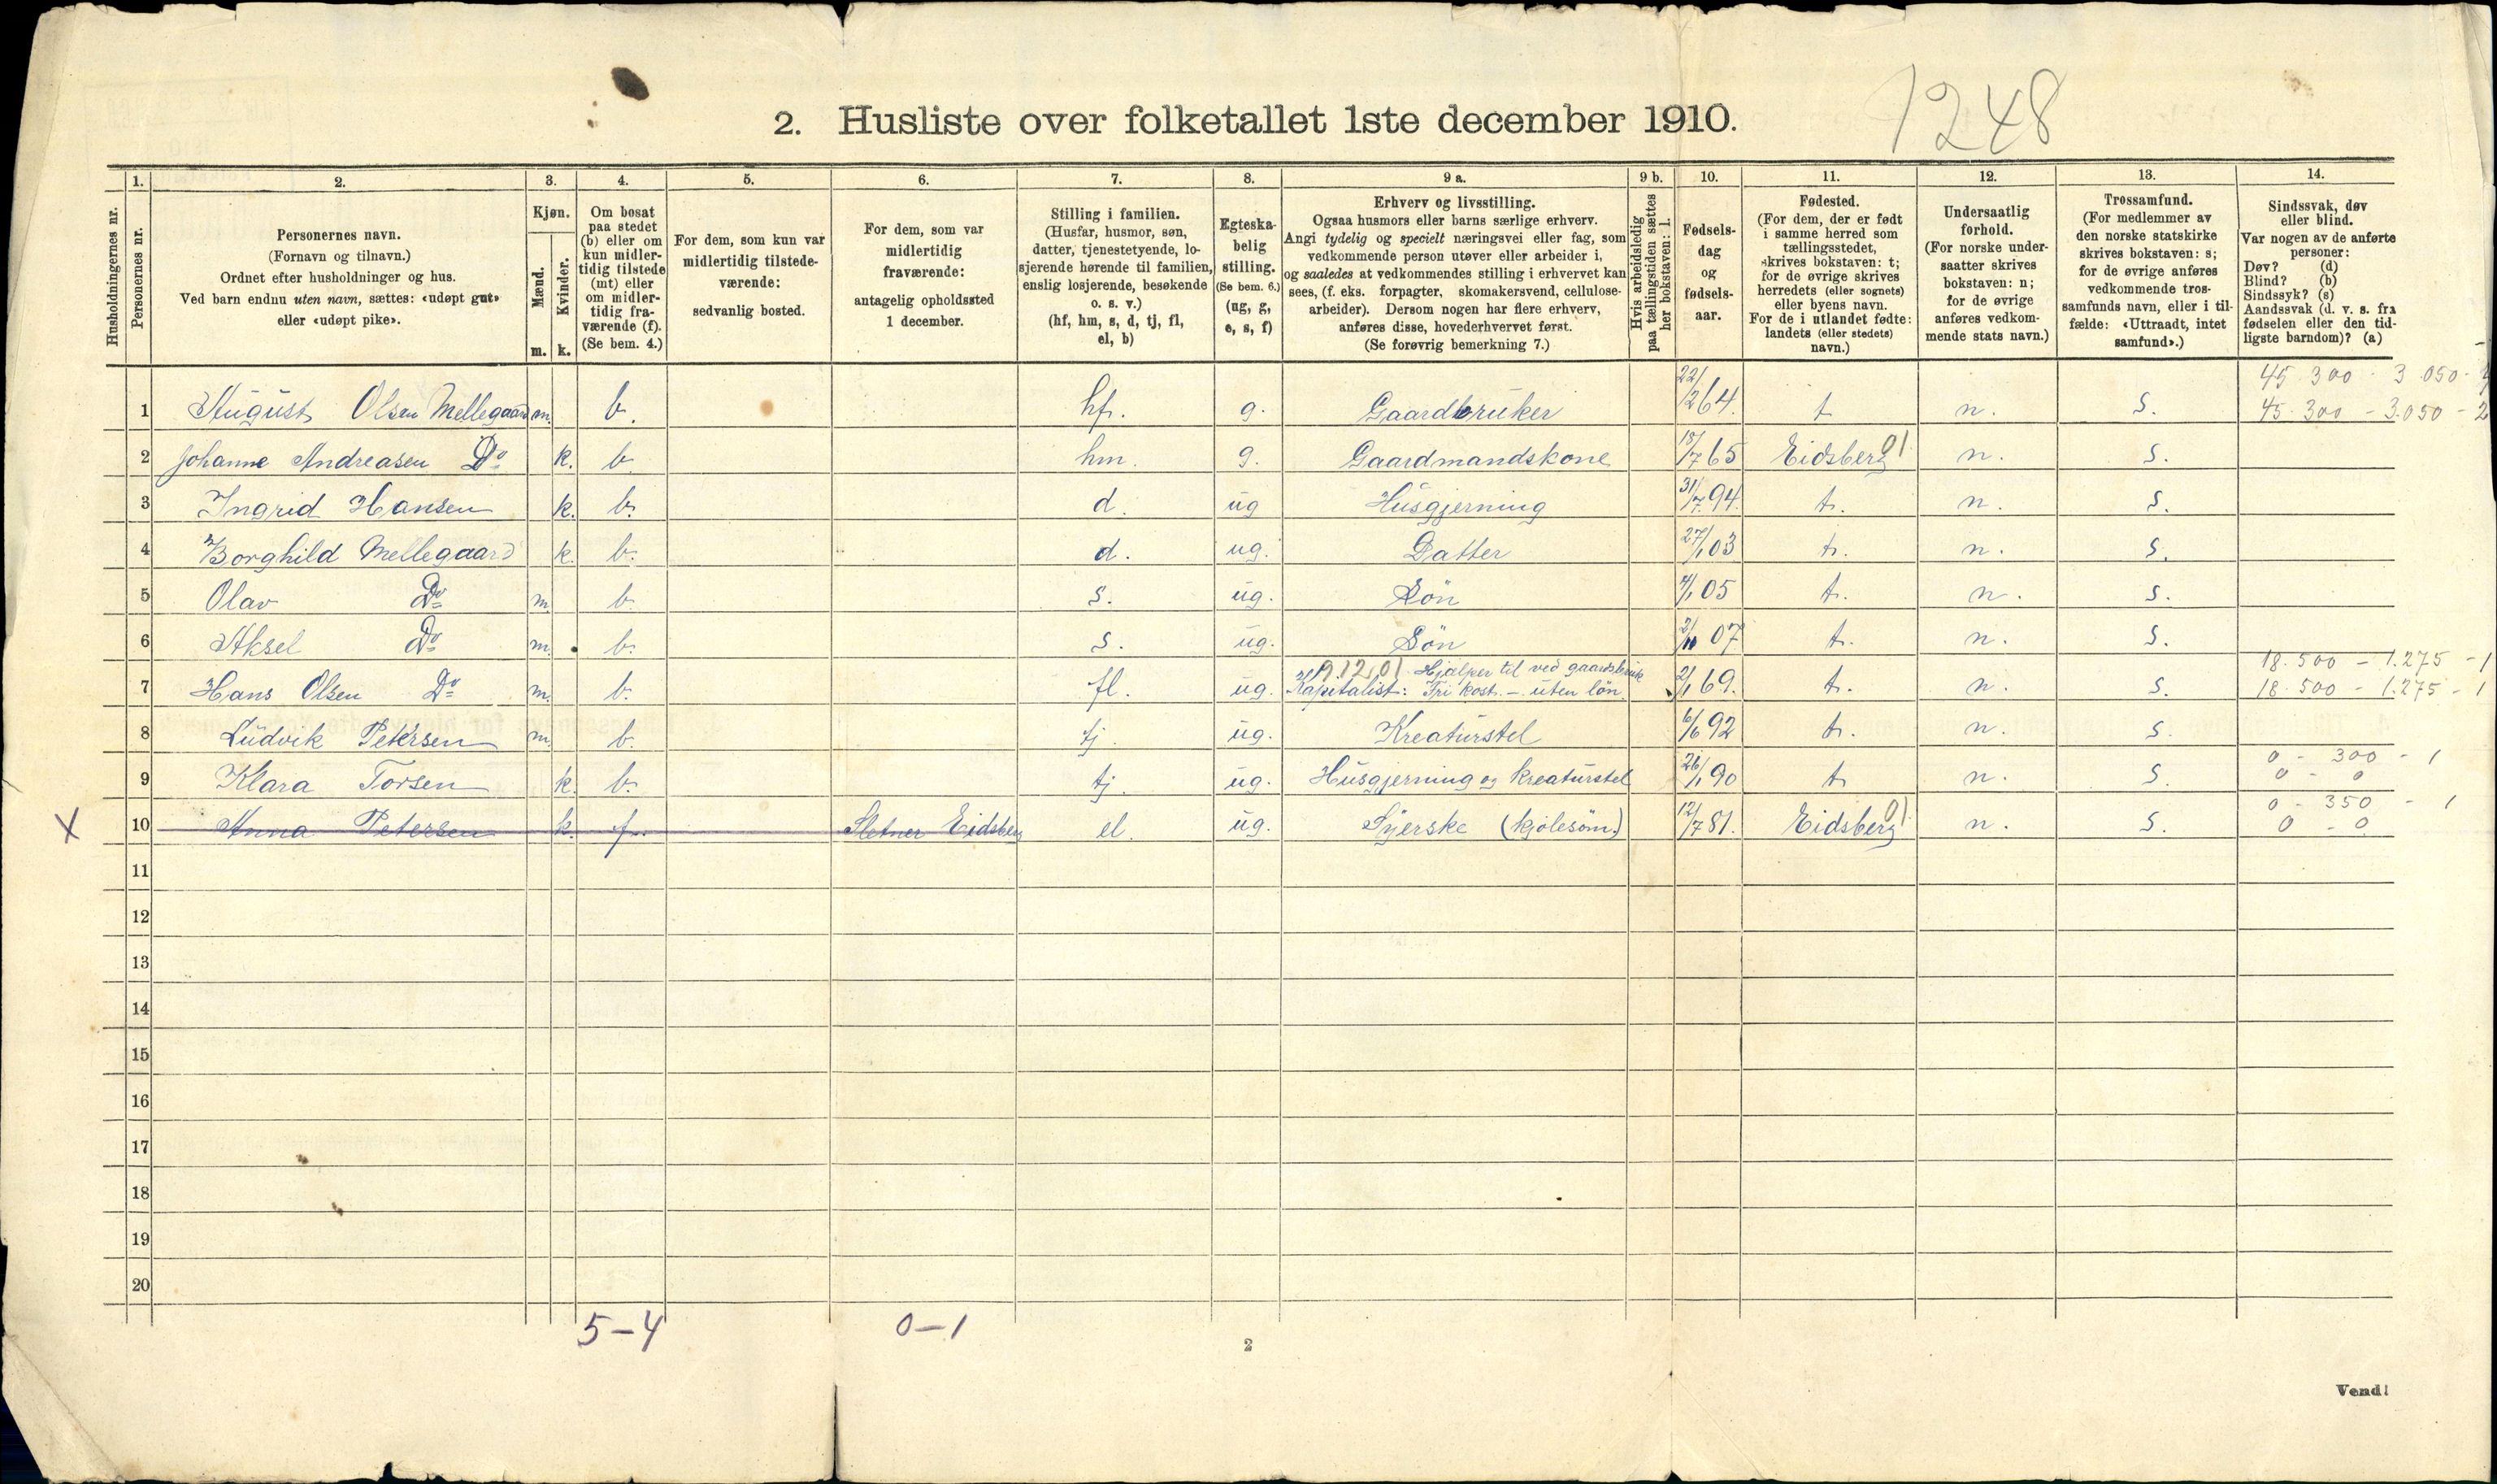 1248
2. Husliste over folketallet 1ste december 1910.
1. 2. 3. 4. 5. 6. 7. 8. 9 a. 9 b. 10. 11. 12. 13. 14.
Husholdningernes nr.
Personernes nr.
Personernes navn.
(Fornavn og tilnavn.)
Ordnet efter husholdninger og hus.
Ved barn endnu uten navn, sættes: «udøpt gut»
eller «udøpt pike».
Kjøn.
Mænd.
Kvinder.
m. k.
Om bosat
paa stedet
(b) eller om
kun midler-
tidig tilstede
(mt) eller
om midler-
tidig fra-
værende (f).
(Se bem. 4.)
For dem, som kun var
midlertidig tilstede-
værende:
sedvanlig bosted.
For dem, som var
midlertidig
fraværende:
antagelig opholdssted
1 december.
Stilling i familien.
(Husfar, husmor, søn,
datter, tjenestetyende, lo-
sjerende hørende til familien,
enslig losjerende, besøkende
o. s. v.)
(hf, hm, s, d, tj, fl,
el, b)
Egteska-
belig
stilling.
(Se bem. 6.)
(ug, g,
e, s, f)
Erhverv og livsstilling.
Ogsaa husmors eller barns særlige erhverv.
Angi tydelig og specielt næringsvei eller fag, som
vedkommende person utøver eller arbeider i,
og saaledes at vedkommendes stilling i erhvervet kan
sees, (f. eks. forpagter, skomakersvend, cellulose-
arbeider). Dersom nogen har flere erhverv,
anføres disse, hovederhvervet først.
(Se forøvrig bemerkning 7.)
Hvis arbeidsledig
paa tællingstiden sættes
her bokstaven: l.
Fødsels-
dag
og
fødsels-
aar.
Fødested.
(For dem, der er født
i samme herred som
tællingsstedet,
skrives bokstaven: t;
for de øvrige skrives
herredets (eller sognets)
eller byens navn.
For de i utlandet fødte:
landets (eller stedets)
navn.)
Undersaatlig
forhold.
(For norske under-
saatter skrives
bokstaven: n;
for de øvrige
anføres vedkom-
mende stats navn.)
Trossamfund.
(For medlemmer av
den norske statskirke
skrives bokstaven: s;
for de øvrige anføres
vedkommende tros-
samfunds navn, eller i til-
fælde: «Uttraadt, intet
samfund».)
Sindssvak, døv
eller blind.
Var nogen av de anførte
personer:
Døv? (d)
Blind? (b)
Sindssyk? (s)
Aandssvak (d. v. s. fra
fødselen eller den tid-
ligste barndom)? (a)
45.300 - 3.050 -
1 August Olsen Mellegaard m. b. hf. g. Gaardbruker 22/2 64. t n. s. 45.300 - 3.050 - 2
2 Johanne Andreasen Do k. b. hm. g. Gaardmandskone 18/7 65 Eidsberg 01 n. s.
3 Ingrid Hansen k. b. d. ug Husgjerning 31/7 94. t. n. s.
4 Borghild Mellegaard k. b. d. ug. Datter 27/1 03 t. n. s.
5 Olav Do m. b. s. ug. Sön 4/1 05 t. n. s.
6 Aksel Do m. b. s. ug. Sön 2/10 07 t. n. s.
Hjælper til ved gaardsbruk 18.500 - 1.275 - 1
7 Hans Olsen Do m. b. fl. ug. Kapitalist: Fri kost. - uten lön. 2/1 69. t. n. s. 18.500 - 1.275 - 1
8 Ludvik Petersen m. b. tj. ug. Kreaturstel 6/6 92 t. n. s.
0 - 300 - 1
9 Klara Torsen k. b. tj. ug. Husgjerning og kreaturstel 26/1 90 t n. s. 0 - 0
0 - 350 - 1
X 10 Anna Petersen k. f. Sletner Eidsberg el. ug. Syerske (kjolesöm.) 12/7 81. Eidsberg 01 n. s. 0 - 0
11
12
13
14
15
16
17
18
19
20
5-4 0-1
2
Vend!